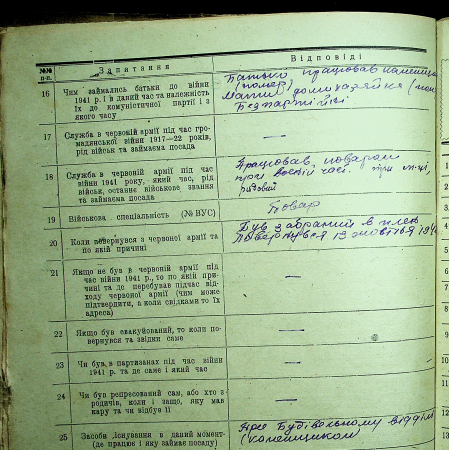 №№ п-п.
Запитання
Відповіді
16
Чим займались батьки до війни
1941 р. і в даний час та належність
їх до комуністичної партії і з
якого часу
Батько працював
(помер)
Мати домохазяйка
Безпартійні
17
Служба в червоній армії під час гро-
мадянської війни 1917—22 років,
рід військ та займаєма посада
—
18
Служба в червоній армії під час
війни 1941 року, який час, рід
військ, останнє військове звання
та займаєма посада
Працював поваром
при воєній часі. три м-ці,
рядовий
19
Військова спеціальність (№ ВУС)
Повар
20
Коли повернувся з червоної армії та
по якій причині
Був забраний в плен
Повернувся 13 жовтня 194
21
Якщо не був в червоній армії під
час війни 1941 р., то по якій при-
чині та де перебував підчас від-
ходу червоної армії (чим може
підтвердити, а коли свідками то їх
адреса)
—
22
Якщо був евакуйований, то коли по-
вернувся та звідки саме
—
23
Чи був в партизанах під час війни
1941 р. та де саме і який час
—
24
Чи був репресований сам, або хто з
родичів, коли і защо, яку мав
кару та чи відбув її
—
25
Засоби існування в даний момент-
(де працює і яку займає посаду)
При Будівельному відділі
(каменщиком)